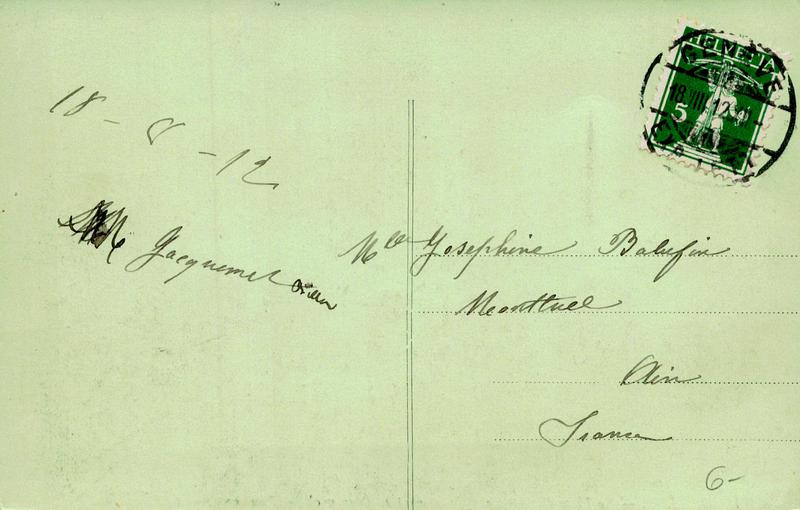 HELVETIA
5
GENÈVE
18.VIII.12
18 - 8 - 12
Jacquemet
Mlle Josephine Balufin
Montluel
Ain
France
6-